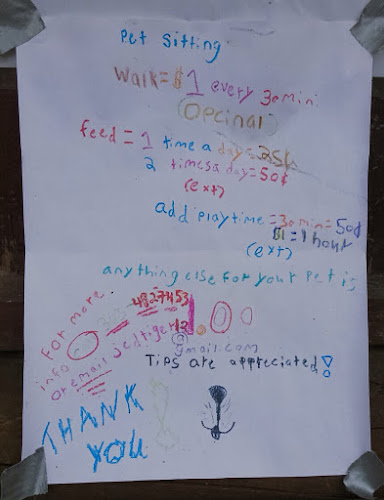 Pet Sitting
Walk = $1 every 30 min
(Opcinal)
feed = 1 time a day = 25¢
2 timesa day = 50¢
(ext)
add playtime = 30 min = 50¢
$1 = 1 hour
(ext)
anything else for your Pet is
1.00
For more
info
4827453
or email Jedtiger12
@gmail.com
Tips are appreciated!
THANK
YOU